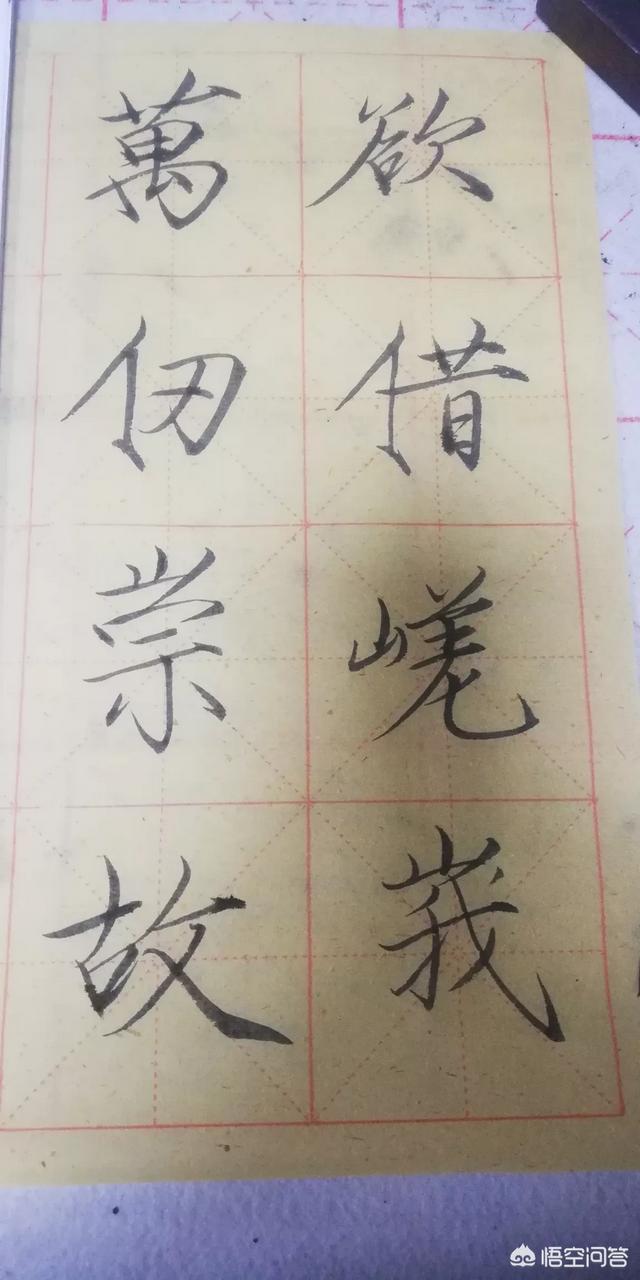 欲借嵯峩
萬仞崇故
悟空问答